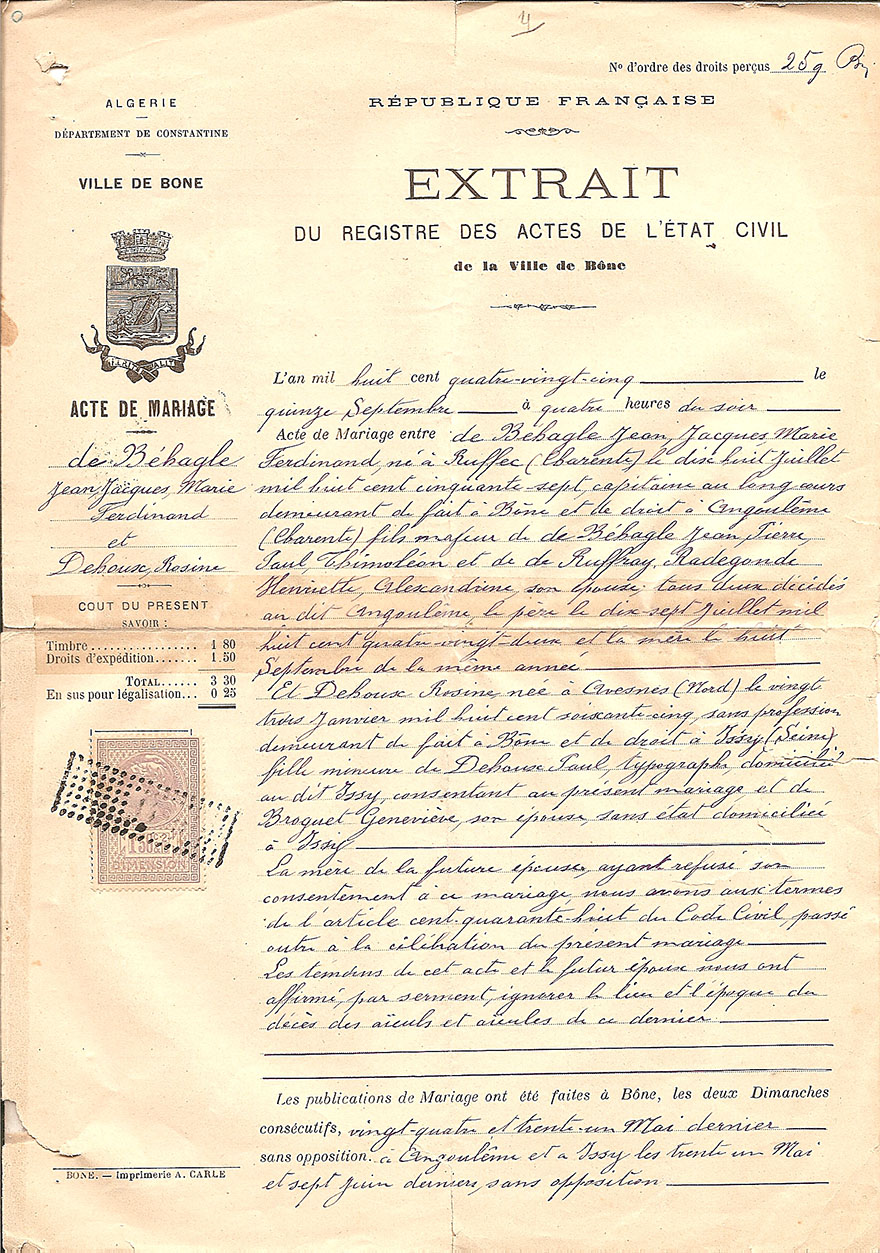 4
N° d'ordre des droits perçus 259
ALGERIE
DÉPARTEMENT DE CONSTANTINE
VILLE DE BONE
ACTE DE MARIAGE
de Béhagle
Jean, Jacques, Marie
Ferdinand
et
Dehousse, Rosine
COUT DU PRESENT
SAVOIR :
Timbre.................. 1 80
Droits d'expédition....... 1.50
TOTAL...... 3 30
En sus pour légalisation... 0 25
DIMENSION
BONE. — Imprimerie A. CARLE
RÉPUBLIQUE FRANÇAISE
EXTRAIT
DU REGISTRE DES ACTES DE L'ÉTAT CIVIL
de la Ville de Bône
L'an mil huit cent quatre-vingt-cinq le
quinze Septembre à quatre heures du soir
Acte de Mariage entre de Béhagle Jean, Jacques, Marie
Ferdinand, né à Ruffec (Charente) le dix huit Juillet
mil huit cent cinquante-sept, capitaine au long cours
demeurant de fait à Bône et de droit à Angoulême
(Charente) fils majeur de de Béhagle Jean, Pierre,
Paul, Thimoléon et de de Ruffray, Radegonde
Henriette, Alexandrine, son épouse; tous deux décédés
au dit Angoulême, le père le dix-sept Juillet mil
huit cent quatre-vingt-deux et la mère le huit
Septembre de la même année
Et Dehousse Rosine, née à Avesnes (Nord) le vingt
trois Janvier mil huit cent soixante-cinq, sans profession
demeurant de fait à Bône et de droit à Issy (Seine)
fille mineure de Dehousse Paul, typographe, domicilié
au dit Issy, consentant au présent mariage et de
Broguet Geneviève, son épouse, sans état domiciliée
à Issy
La mère de la future épouse, ayant refusé son
consentement à ce mariage, nous avons aux termes
de l'article cent-quarante-huit du Code Civil, passé
outre à la célébration du présent mariage
Les témoins de cet acte et le futur époux nous ont
affirmé, par serment, ignorer le lieu et l'époque du
décès des aïeuls et aïeules de ce dernier
Les publications de Mariage ont été faites à Bône, les deux Dimanches
consécutifs, vingt-quatre et trente-un Mai dernier
sans opposition. à Angoulême et à Issy les trente un Mai
et sept Juin derniers, sans opposition